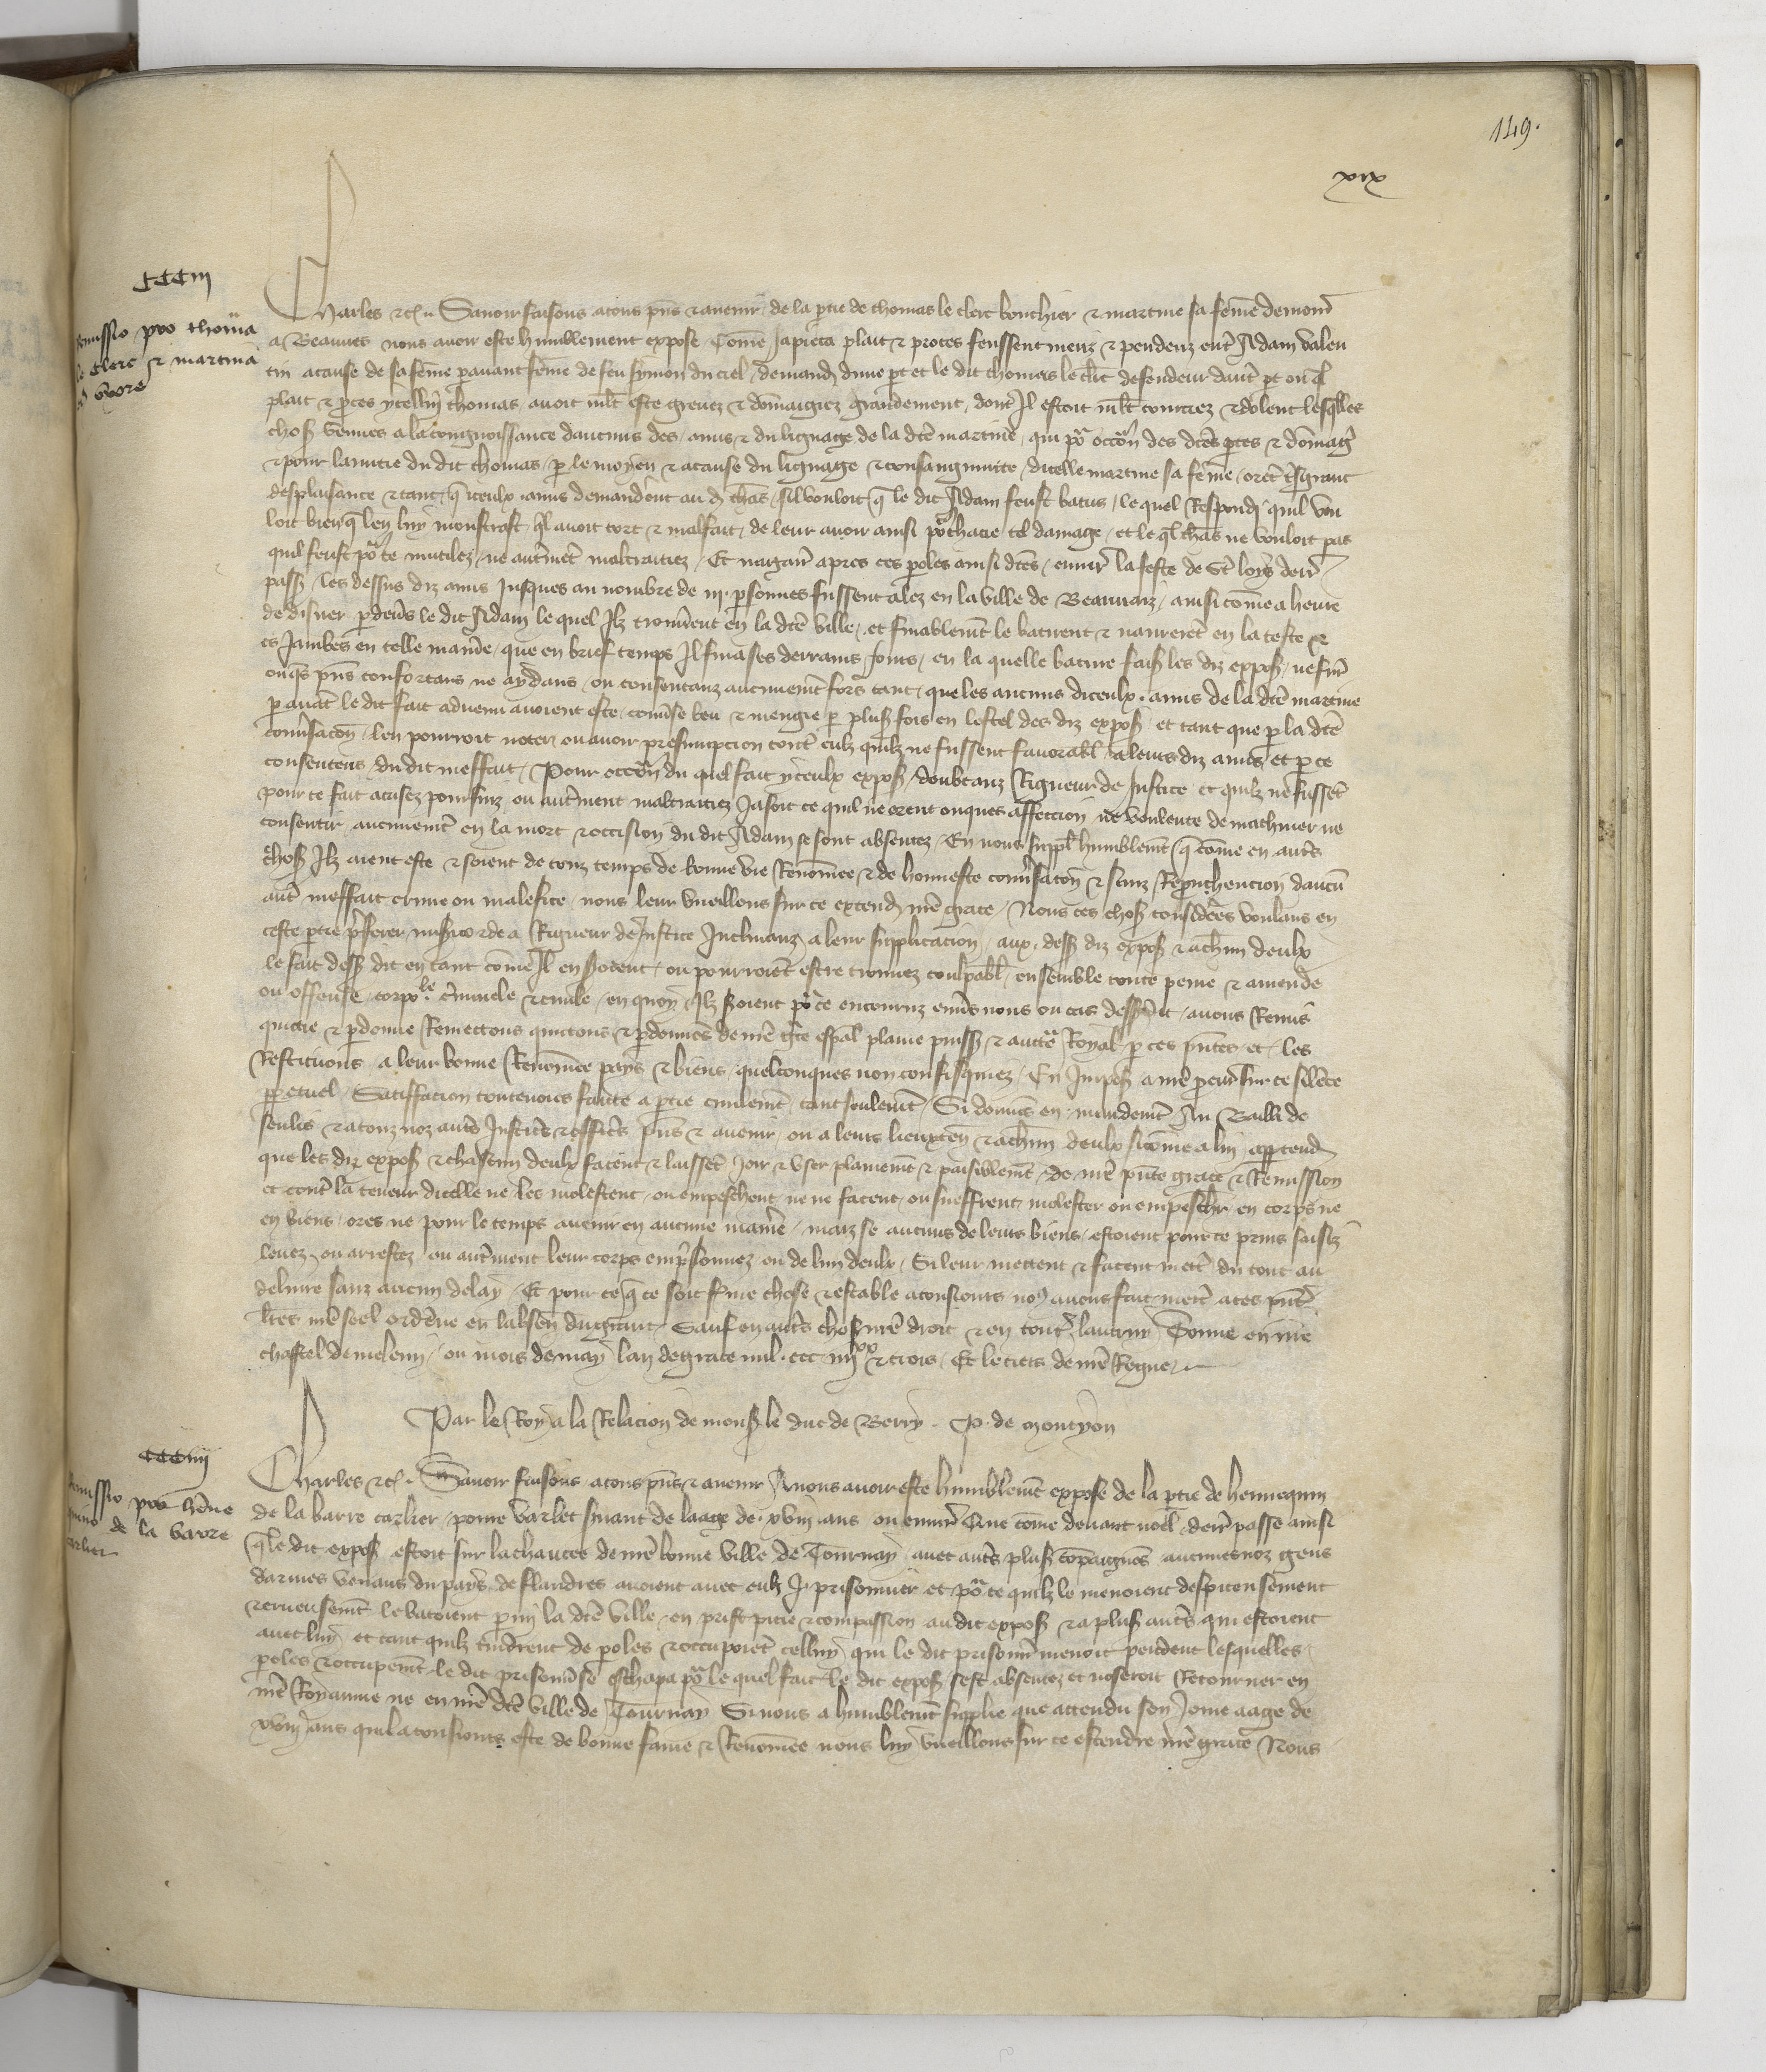 149.
xix
CCCIII
Remissio pro thoma
le clerc et martina
eius uxore
Charles etc. Savoir faisons a tous pns et avenir de la ptie de thomas le clerc bouchier et martine sa feme demour
a Beauves nous avoir este humblement expose Come ja pieca plait et proces feussent meuz et pendenz entre Adam valen
tin a cause de sa feme p avant feme de feu symon du ciel demand dune pt et le dit thomas le clerc defendeur dautre pt ou ql
plait et proces ycelluy thomas avoit mlt este grevez et domaigiez grandement dont Il estoit mlt courciez et dolent lesqlles
choses venues a la congnoissance daucuns des amis et du lignage de la dte martine qui por occon des dtes ptes et domag
et pour lamitie du dit thomas p le moyen et a cause du lignage et consanguinite dicelle martine sa feme orent si grant
desplaisance et tant q iceulx amis demanderent au d thas sil vouloit q le dit Adam feust batus le quel Respondi quil vou
loit bien q len luy monstrast ql avoit tort et malfait de leur avoir ainsi pourchacie tel damage et le ql thas ne vouloit pas
quil feust por ce mutilez ne autremt maltraitiez Et naguer apres ces poles ainsi dtes envir la feste de St loys derr
pass les dessus diz amis jusques au nombre de iij personnes fussent alez en la ville de Beauvaiz ainsi come a heure
de disner p devers le dit Adam le quel Ilz trouverent en la dte ville et finablemt le batirent et navrerent en la teste et
es Jambes en telle maniere que en brief temps Il fina ses derrains jours en la quelle bature faisant les diz expos ne furent
onqs pns confortans ne aydans ou consentanz aucunemt fors tant que les aucuns diceulx amis de la dte martine
p avant le dit fait advenu avoient este converse beu et mengie p pluss fois en lostel des diz expos et tant que p la dte
conversacon len pourroit noter ou avoir presumpcion contre eulz quilz ne fussent favorables a leurs diz amis et p ce
consentens du dit meffait Pour occon du quel fait yceulx expos doubtanz Rigueur de Justice et quilz ne fussent
pour ce fait acusez poursuiz ou autrement maltraitiez Jasoit ce quil ne orent onques affeccion ne voulente de machiner ne
consentir aucunemt en la mort et occision du dit Adam se sont absentez En nous suppl humblemt q come en autres
choses Ilz aient este et soient de touz temps de bonne vie Renomee et de honneste conversacon et sanz Reprouchencion daucu
autre meffait crime ou malefice nous leur vueillons sur ce extend nre grace Nous ces choses considerees voulans en
ceste ptie preferer misericorde a Rigueur de Justice Inclinanz a leur supplicacion aux dess diz expos et a chun deulx
le fait dess dit en tant come Il en sovent ou pourroient estre trouvez coulpables ensemble toute peine et amende
ou offense corporele criminele et civile en quoy Ilz soient por ce encouruz envers nous ou cas dess dit avons Remis
quictie et pdonne Remettons quictons et pdonnons de nre gre especial plaine puiss et auctte Royal p ces pntes et les
Restituons a leur bonne Renomee pays et biens quelconques non confisquiez En Impos a nre pcur sur ce silence
ppetuel Satiffacion toutevoies faicte a ptie civilemt tant soulemt Si donons en mandemt Au Bailli de
senlis et a touz noz autres Justices et offices pns et avenir ou a leurs lieuxten et a chun deulx si come a lui apptend
que les diz expos et chascun deulx facent et laissent Joir et user plainemt et paisiblemt de nre pnte grace et Remission
et contre la teneur dicelle ne les molestent ou empeschent ne ne facent ou sueffrent molester ou empescher en corps ne
en biens ores ne pour le temps avenir en aucune maniere maiz se aucuns de leurs biens estoient pour ce prins saisiz
levez ou arrestez ou autrement leur corps emprisonnez ou de lun deulx Si leur mettent et facent mettre du tout au
delivre sanz aucun delay Et pour ce q ce soit ferme chose et estable a tousiours no9 avons fait mettre a ces pntes
lres nre seel ordene en labsen du grant Sauf en autres choses nre droit et en toutes lautruy Donne en nre
chastel de meleun ou mois de may lan de grace mil ccc iiijxx et trois Et le tiers de nre Regne
Par le Roy a la Relacion de mons le duc de Berry. P. de montyon
CCCIIII
Remissio pro henne
quino de la barre
carlier
Charles etc. Savoir faisons a tous pns et avenir A nous avoir este humblemt expose de la ptie de hennequin
de la barre carlier povre varlet simant de laage de xviij ans ou envir Que come devant noel derr passe ainsi
q le dit expos estoit sur la chaucee de nre bonne ville de Tournay avec autres pluss compaignons aucunes noz gens
darmes venans du pays de flandres avoient avec eulz j prisonnier et por ce quilz le menoient despiteusement
et crueusemt le batoient p my la dte ville en prist pitie et compassion au dit expos et a pluss autres qui estoient
avec luy et tant quilz tindrent de poles et occuperent celluy qui le dit prisonnier menoit pendent lesquelles
poles et occupemt le dit prisonnier se eschapa por le quel fait le dit expos sest absentez et noseroit Retourner en
nre Royaume ne en nre dte ville de Tournay Si nous a humblemt supplie que attendu son Jeune aage de
xviij ans quil a tousiours este de bonne fame et Renomee nous luy vueillons sur ce estendre nre grace Nous